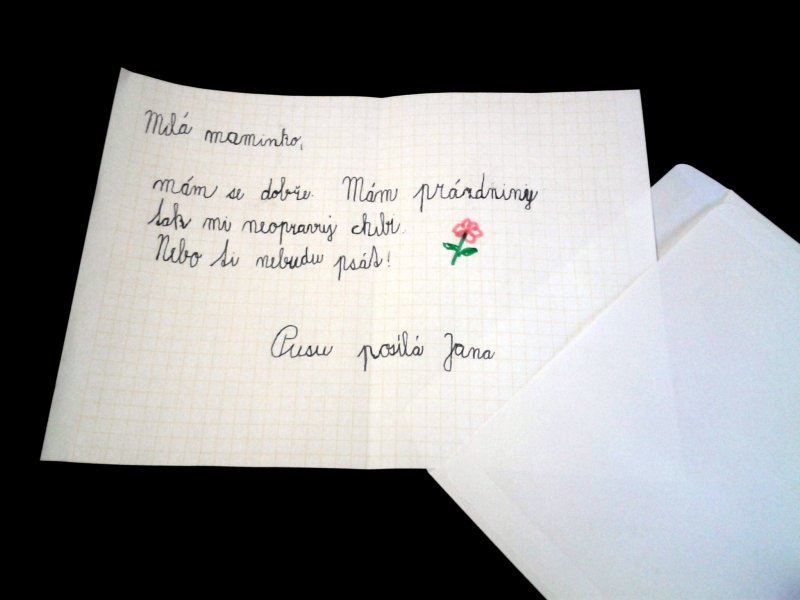 Milá maminko,
mám se dobře. Mám prázdniny
tak mi neopravuj chibi.
Nebo ti nebudu psát!
Pusu posílá Jana